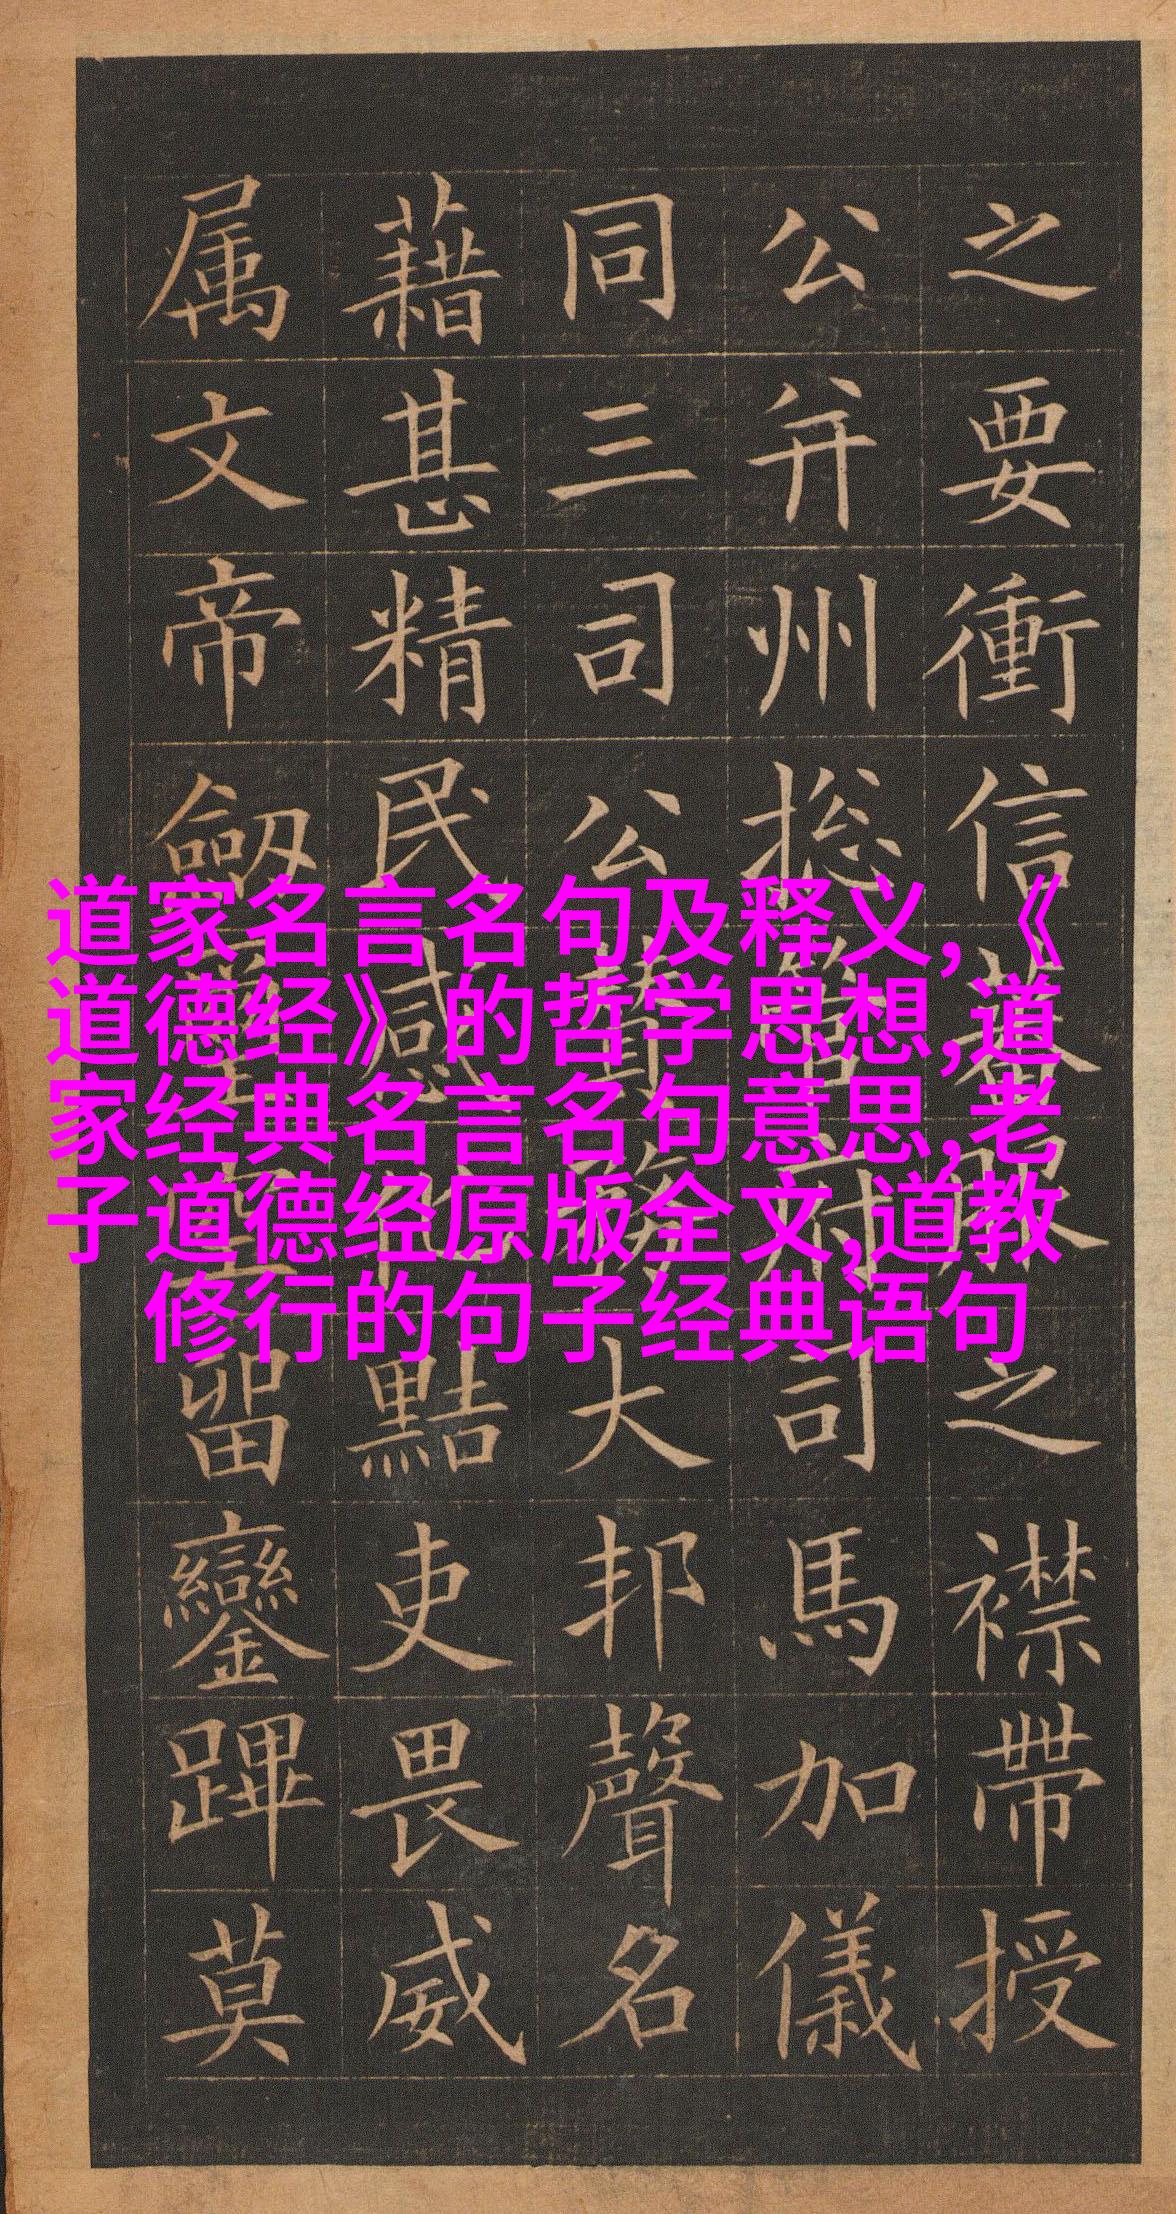 道家名言名句及释义,《
道德经》的哲学思想,道
家经典名言名句意思,老
子道德经原版全文,道教
修行的句子经典语句
之要衝信之襟帶授
公并州捴管府司馬加儀
同三司公贊務大邦聲名
藉甚精民感化點吏畏威
属文帝劒空留鑾蹕莫